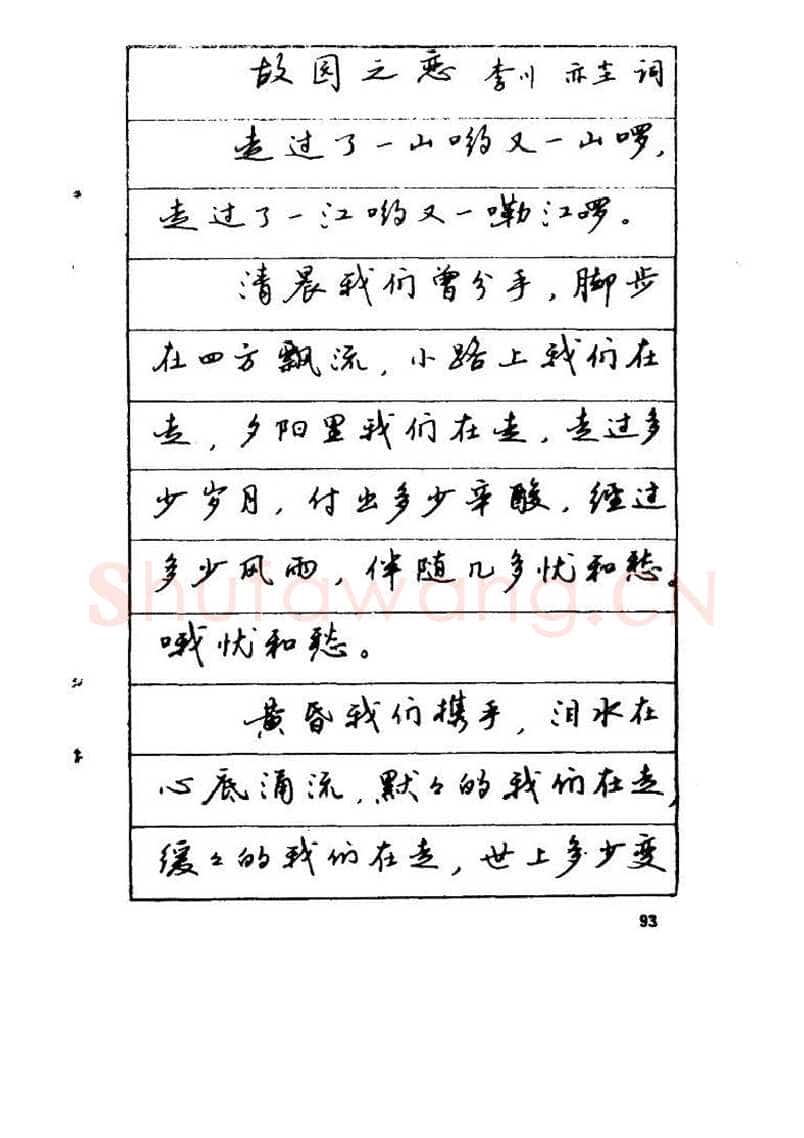 故园之恋 李川 亦尘词
走过了一山哟又一山啰，
走过了一江哟又一嘞江啰。
清晨我们曾分手，脚步
在四方飘流，小路上我们在
走，夕阳里我们在走，走过多
少岁月，付出多少辛酸，经过
多少风雨，伴随几多忧和愁。
哦忧和愁。
黄昏我们携手，泪水在
心底涌流，默々的我们在走，
缓々的我们在走，世上多少变
93
Shufawang.CN